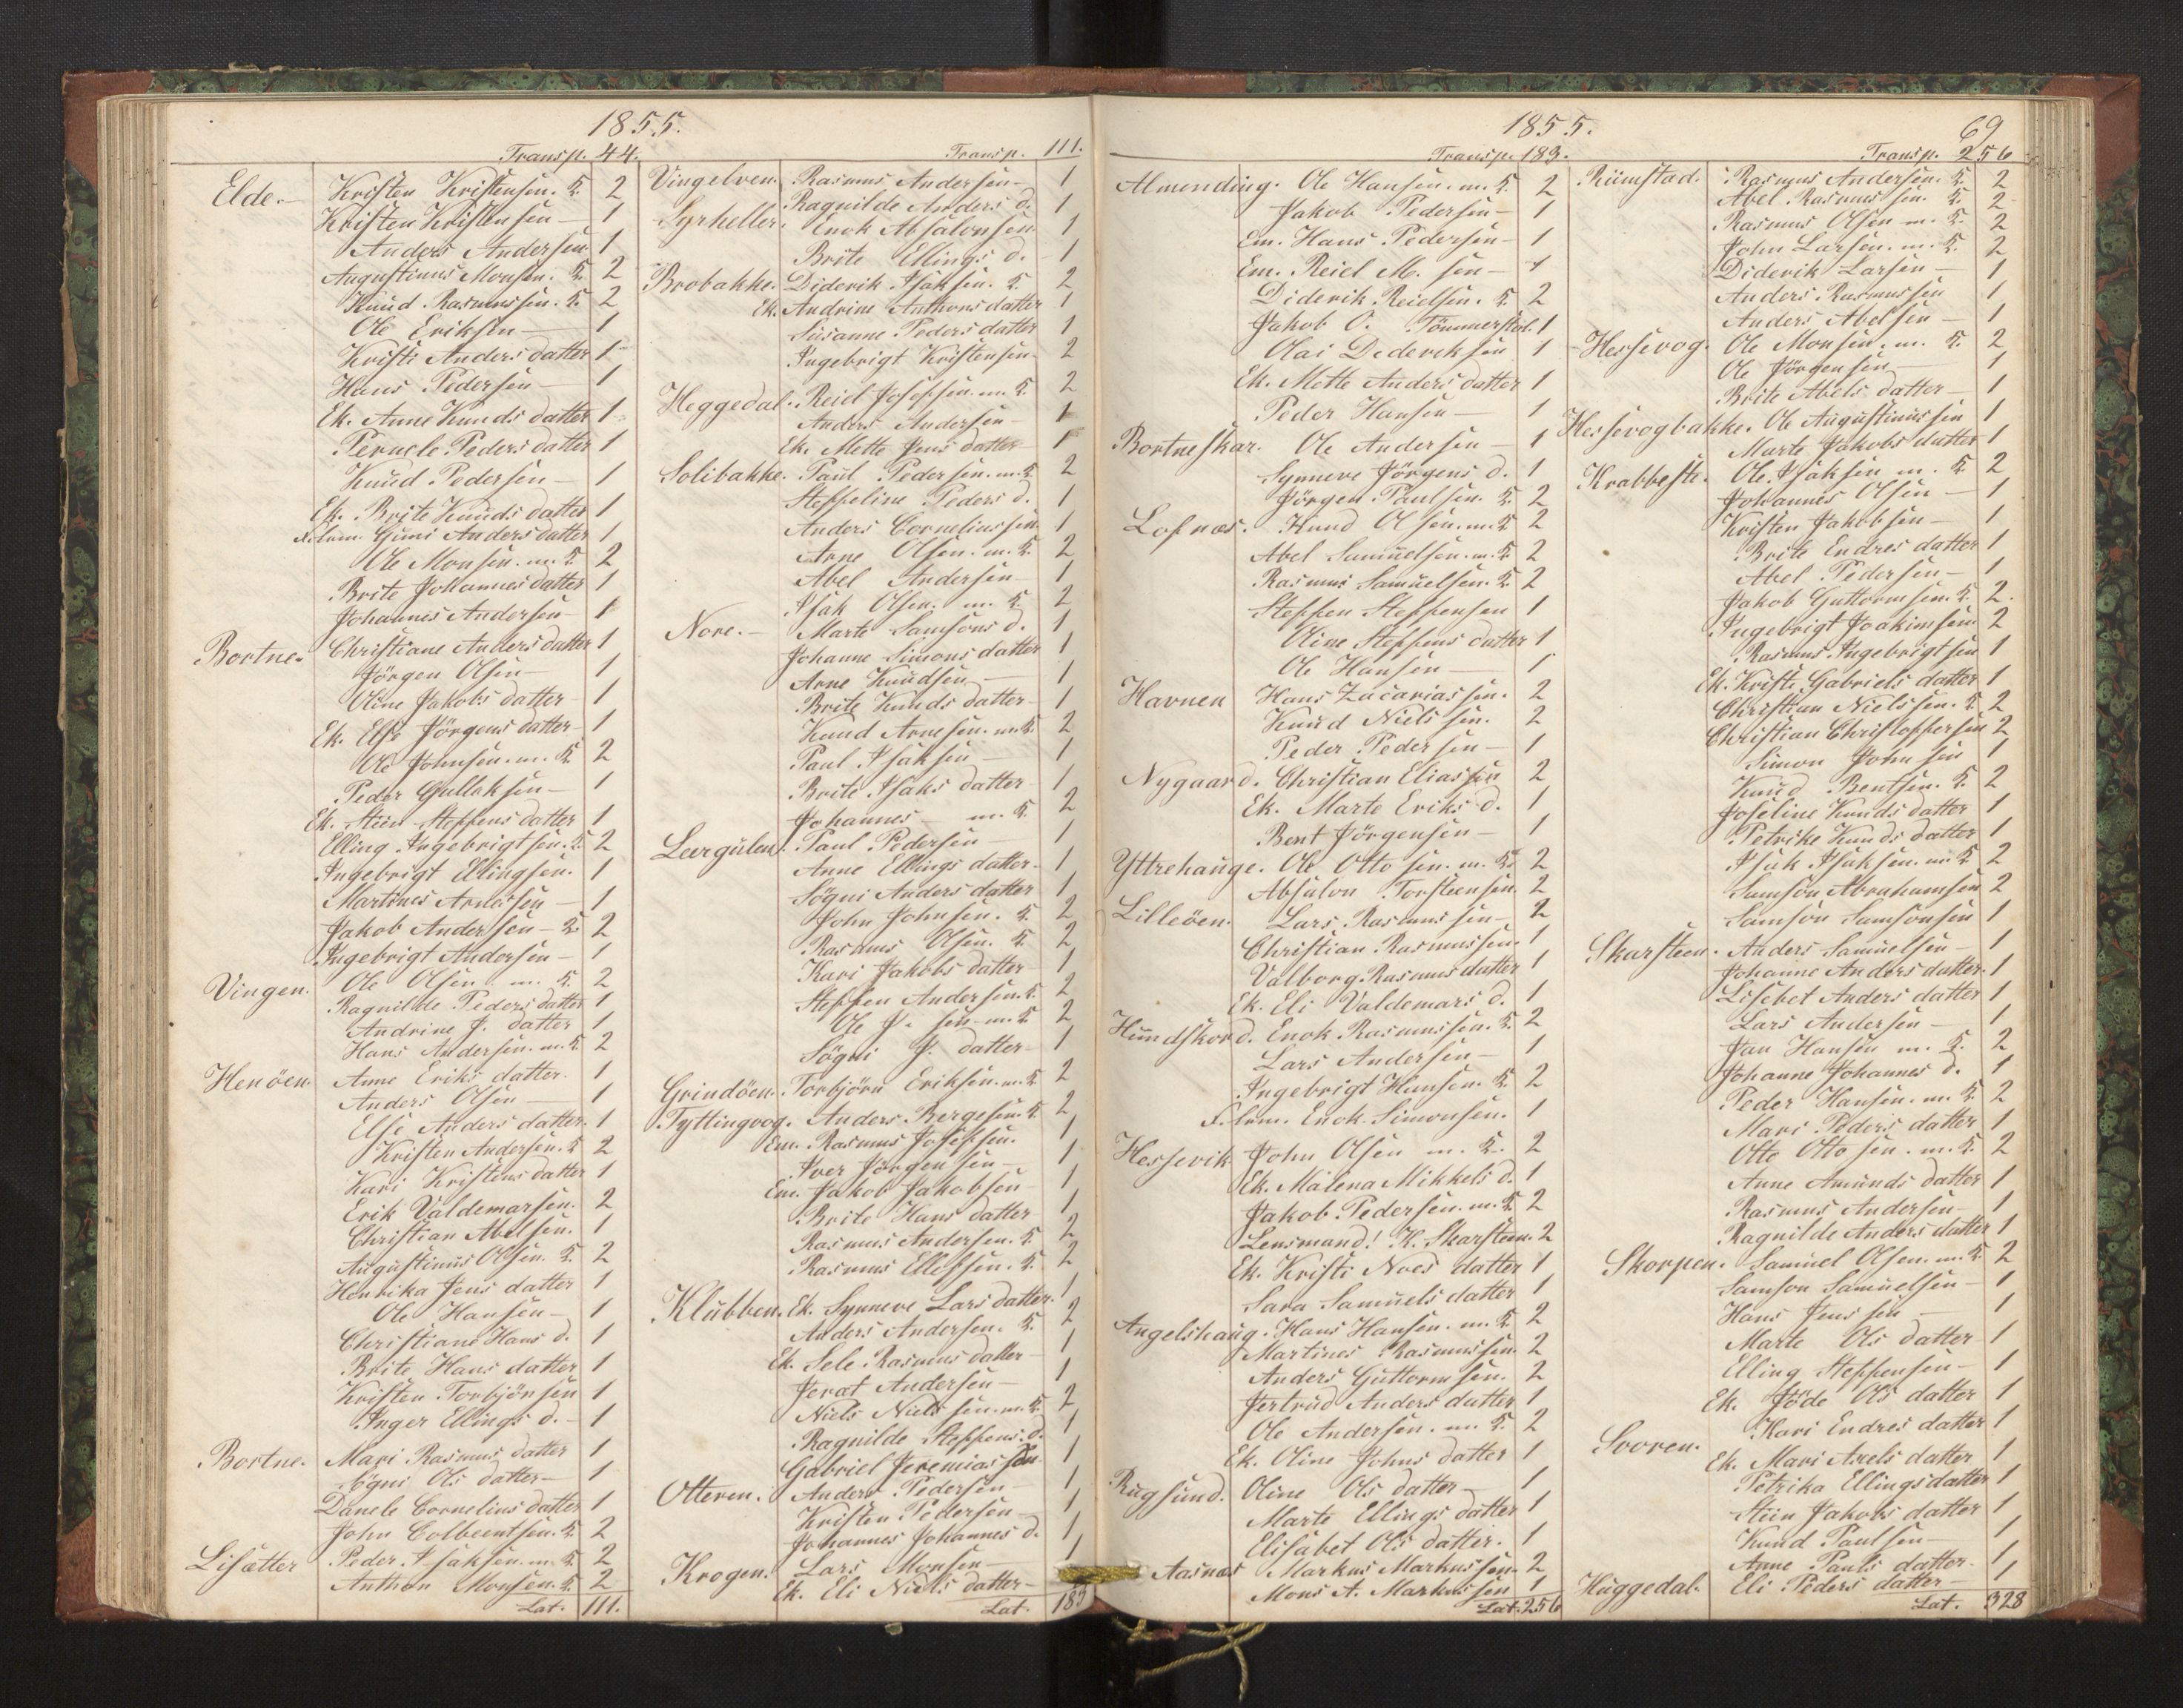 1855.
Transp. 44.
Elde.— Kristen Kristensen. K. 2
Kristen Kristensen — 1
Anders Andersen. 1
Augustinus Monsen. K. 2
Knud Rasmussen. K. 2
Ole Eriksen — 1
Kristi Anders datter 1
Hans Pedersen — 1
Ek. Anne Knuds datter 1
Pernele Peders datter 1
Knud Pedersen — 1
Ek. Brite Knuds datter 1
Guni Anders datter 1
Ole Monsen. m. K. 2
Brite Johannes datter 1
Johannes Andersen — 1
Bortne. Christiane Anders datter 1
Jörgen Olsen — 1
Oline Jakobs datter 1
Ek. Else Jörgens datter 1
Ole Johnsen. m. K. 2
Peder Gullaksen — 1
Ek. Steffens datter 1
Elling Ingebrigtsen. K. 2
Ingebrigt Ellingsen. 1
Martines Arnessen — 1
Jakob Andersen — K. 2
Ingebrigt Andersen — 1
Vingen. Ole Olsen. m. K. 2
Ragnilde Peders datter 1
Andrine J. datter 1
Hans Andersen. m. K. 2
Henöen. Anne Eriks datter. 1
Anders Olsen — 1
Else Anders datter. 1
Kristen Andersen. K. 2
Kari Kristens datter 1
Erik Valdemarsen. 2
Christian Abelsen. 1
Augustinus Olsen. K. 2
Henrika Jens datter 1
Ole Hansen — 1
Christiane Hans d. 1
Brite Hans datter 1
Kristen Torbjörnsen 1
Inger Ellings d. — 1
Bortne. Mari Rasmus datter 1
Sögni Ols datter — 1
Danele Cornelius datter 1
John Colbeentsen. K. 2
Lisætter Peder Isaksen. m. K. 2
Anthon Monsen. K. 2
Lat. 111.
Transp. 111.
Vingelven. Rasmus Andersen — 1
Ragnilde Anders d. 1
Syrheller. Enok Absalonsen 1
Brite Ellings d. — 1
Brobakke. Diderik Isaksen. K. 2
Ek. Andrine Anthons datter 1
Susanne Peders datter 1
Ingebrigt Kristensen 2
Heggedal. Reid Josefsen. m. K. 2
Anders Andersen — 1
Ek. Mette Jens datter 1
Solibakke. Paul Pedersen. m. K. 2
Steffeline Peders d. 1
Anders Corneliussen. 1
Arne Olsen. m. K. 2
Abel Andersen — 1
Isak Olsen. m. K. 2
Nore.— Marte Samsons d. 1
Johanne Simons datter 1
Arne Knudsen — 1
Brite Knuds datter 1
Knud Arnesen. m. K. 2
Paul Isaksen — 1
Brite Isaks datter 1
Johannes — m. K. 2
Leirgulen. Paul Pedersen 1
Anne Ellings datter. 1
Sögni Anders datter 1
John Johnsen. K. 2
Rasmus Olsen. K. 2
Kari Jakobs datter 1
Steffen Andersen. K. 2
Ole J. sen. m. K. 2
Sögni J. datter 1
Grindöen. Torbjörn Eriksen. m. K. 2
Tyttingvog. Anders Bergesen. K. 2
Em. Rasmus Josefsen. 1
Iver Jörgensen — 1
Em. Jakob Jakobsen 1
Brite Hans datter 1
Rasmus Andersen. K. 2
Rasmus Ellefsen. K. 2
Klubben. Ek. Synneve Lars datter. 1
Anders Andersen. K. 2
Ek. Sele Rasmus datter 1
Jerat Andersen — 1
Niels Nielssen. m. K. 2
Ragnilde Steffens. d. 1
Gabriel Jeremiassen 1
Otteren. Anders Pedersen — 1
Kristen Pedersen — 1
Johannes Johannes d. 1
Krogen. Lars Monsen — 1
Ek. Eli Niels datter — 1
Lat. 183
1855.
69
Transp. 183.
Almending. Ole Hansen. m. K. 2
Jakob Pedersen — 1
Em. Hans Pedersen — 1
Em. Reiel M. sen — 1
Diderik Reielsen. K. 2
Jakob O. Tömmerstöl. 1
Olai Dideriksen 1
Ek. Mette Anders datter 1
Peder Hansen — 1
Bortneskar. Ole Andersen — 1
Synneve Jörgens d. 1
Jörgen Paulsen. K. 2
Lofnæs. Knud Olsen. m. K. 2
Abel Samuelsen. m. K. 2
Rasmus Samuelsen. K. 2
Steffen Steffensen 1
Oline Steffens datter 1
Ole Hansen — 1
Havnen Hans Zacariassen. 2
Knud Nielssen. 2
Peder Pedersen — 1
Nygaard. Christian Eliassen 2
Ek. Marte Eriks d. 1
Bent Jörgensen — 1
Yttrehauge. Ole Ottosen. m. K. 2
Absalon Torsteensen. 2
Lilleöen. Lars Rasmussen — 2
Christian Rasmussen. 1
Valborg Rasmus datter 1
Ek. Eli Valdemars d. 1
Hundskord. Enok Rasmussen. K. 2
Lars Andersen — 1
Ingebrigt Hansen. K. 2
Enok Simonsen. 1
Hessevik John Olsen m. K. 2
Ek. Malena Mikkels d. 1
Jakob Pedersen. m. K. 2
Lensmand! K. Skarsteen. 2
Ek. Kristi Noes datter 1
Sara Samuels datter 1
Angelshaug. Hans Hansen. m. K. 2
Martines Rasmussen. 2
Anders Guttormsen. 2
Jertrud Anders datter 1
Ole Andersen. m. K. 2
Ek. Oline Johns datter 1
Rugsund. Oline Ols datter — 1
Marte Ellings datter 1
Elisabet Ols datter. 1
Aasnæs Markus Markussen. 2
Mons A. Markussen 1
Lat. 256
Transp. 256
Rimstad. Rasmus Andersen. K. 2
Abel Rasmussen. K. 2
Rasmus Olsen m. K. 2
John Larsen. m. K. 2
Diderik Larsen — 1
Anders Rasmussen 1
Anders Abelsen — 1
Hessevog. Ole Monsen. m. K. 2
Ole Jörgensen — 1
Brite Abels datter — 1
Hessevogbakke. Ole Augustinussen 1
Marte Jakobs datter 1
Krabbeste. Ole Isaksen m. K. 2
Johannes Olsen — 1
Kristen Jakobsen — 1
Brite Endres datter 1
Abel Pedersen — 1
Jakob Guttormsen. K. 2.
Ingebrigt Joakimsen 2
Rasmus Ingebrigtsen 1
Ek. Kristi Gabriels datter 1
Christian Nielssen. K. 2
Christian Christoffersen 2
Simon Johnsen 1
Knud Bentsen. K. 2
Joseline Knuds datter 1
Petrike Knuds datter 1
Isak Isaksen. m. K. 2
Samson Abrahamsen 2
Samson Samsonsen 1
Skarsteen. Anders Samuelsen — 1
Johanne Anders datter. 1
Lisebet Anders datter 1
Lars Andersen — 1
Jan Hansen m. K. 2
Johanne Johannes d. 1
Peder Hansen. m. K. 2
Mari Peders datter 1
Otto Ottosen. m. K. 2
Anne Amunds datter 1
Rasmus Andersen 1
Ragnilde Anders datter 1
Skorpen. Samuel Olsen. m. K. 2
Samson Samuelsen — 1
Hans Jenssen — 1
Marte Ols datter 1
Elling Steffensen — 1
Ek. Jöde Ols datter 1
Kari Endres datter 1
Svoren. Ek. Mari Axels datter 1
Petrika Ellings datter 1
Jakobs datter 1
Knud Paulsen — 1
Anne Pauls datter. 1
Huggedal. Eli Peders datter — 1
Lat. 328